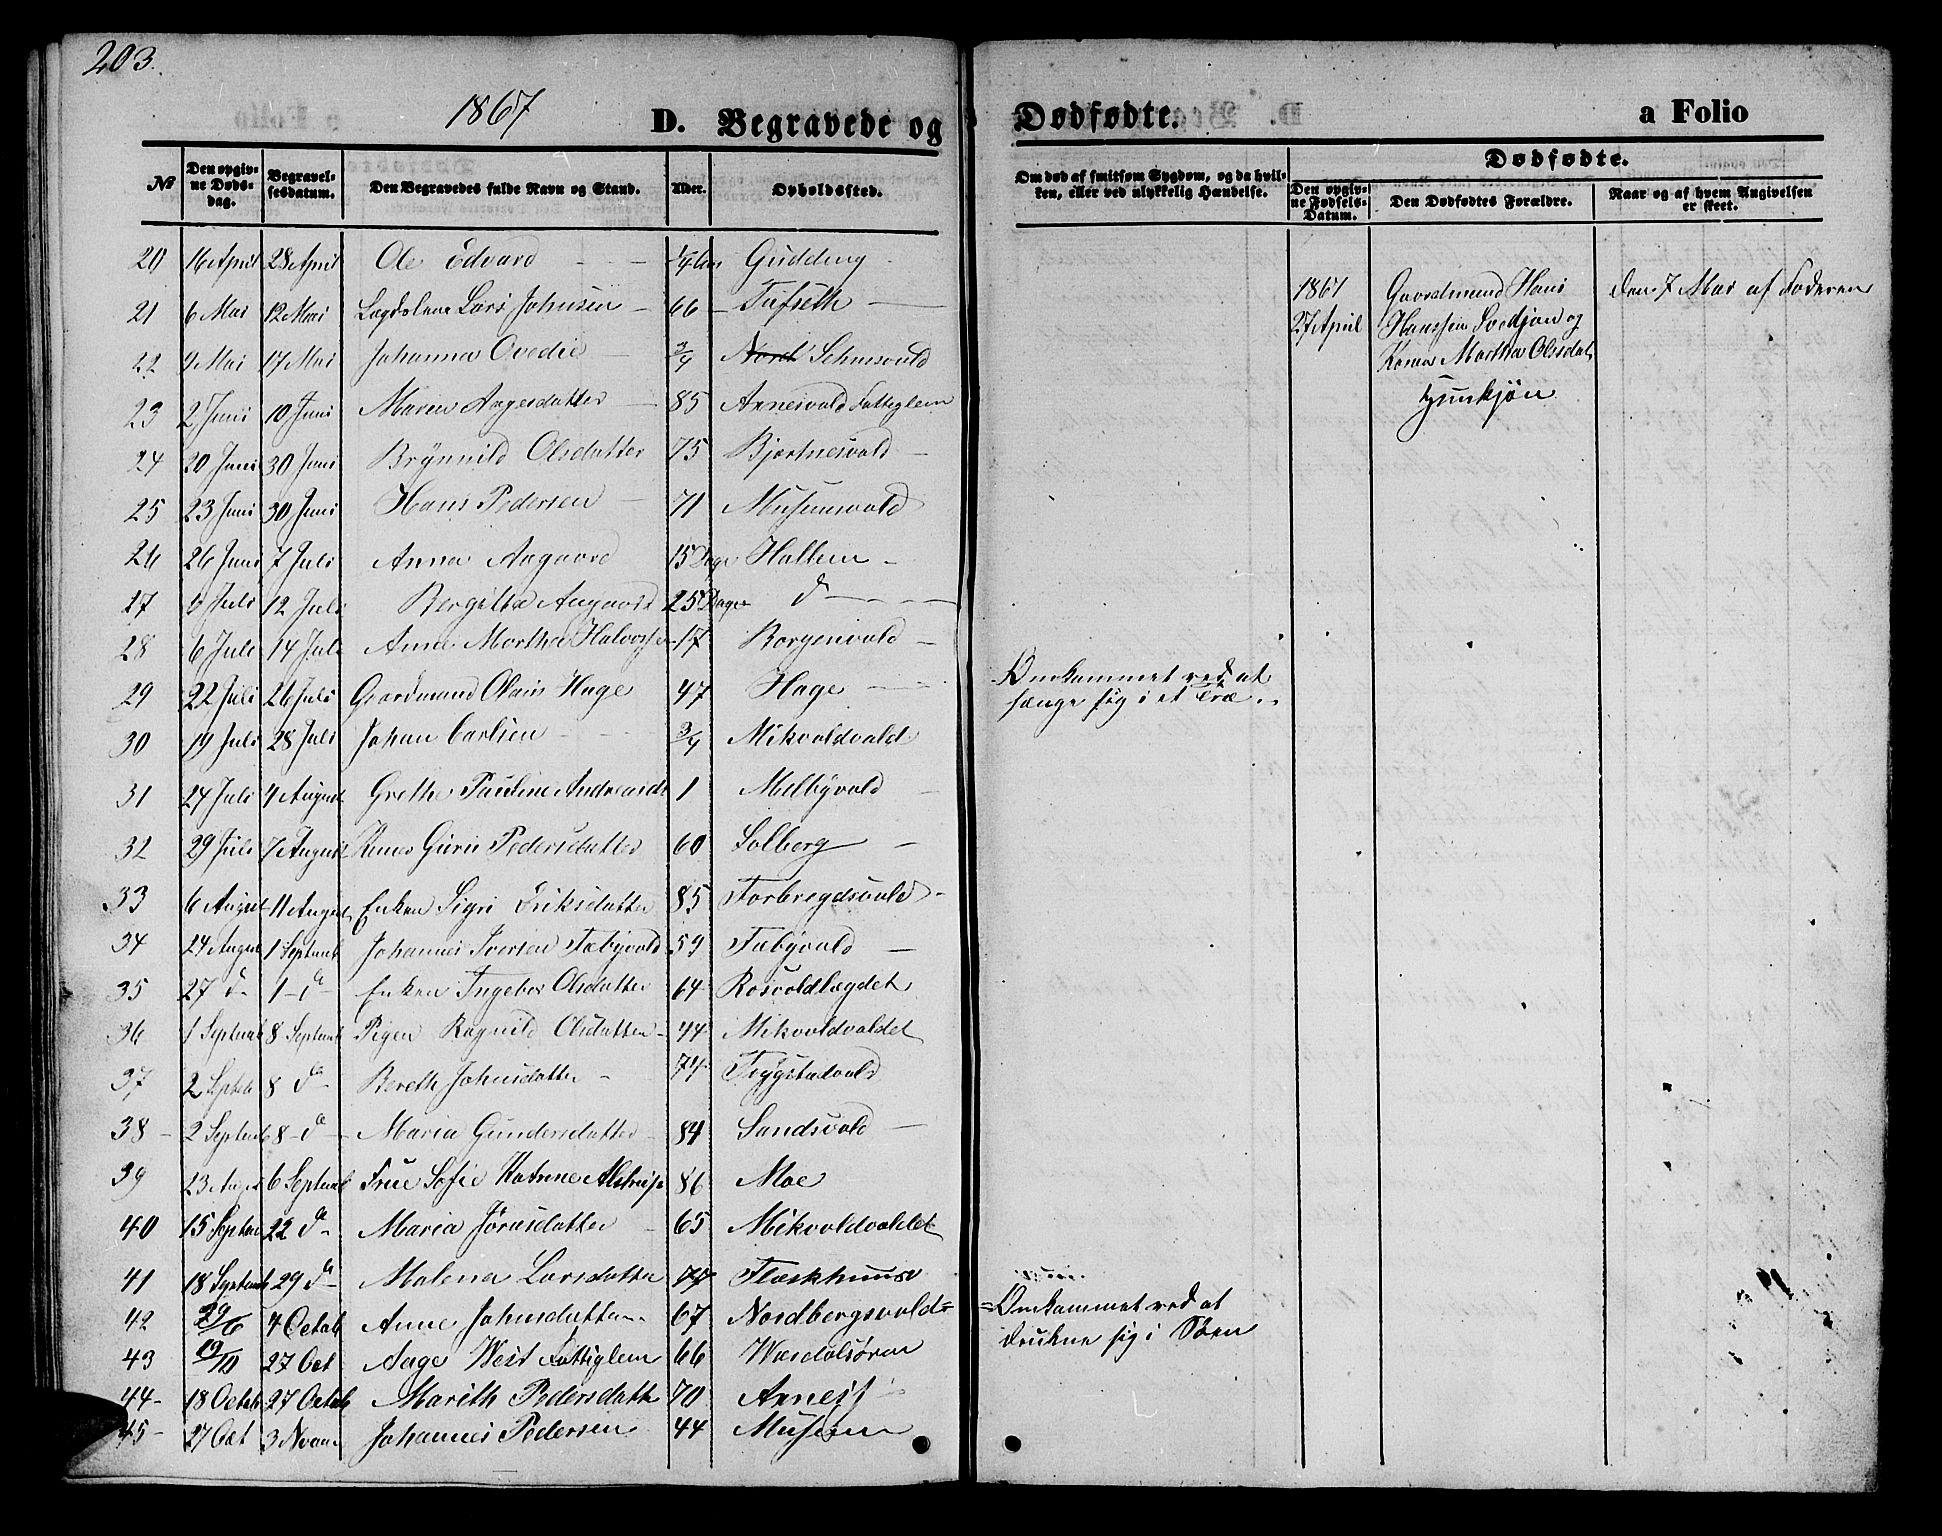 203.
1867
D. Begravede og Dødfødte. a Folio
No
Den opgivne Dødsdag.
Begravelsesdatum.
Den Begravedes fulde Navn og Stand.
Alder.
Opholdssted.
Om død af smitsom Sygdom, og da hvilken, eller ved ulykkelig Hændelse.
Dødfødte.
Den opgivne Fødsels-Datum.
Den Dødfødtes Forældre.
Naar og af hvem Angivelsen er skeet.
20 16 April 28 April Ole Edvard Gudding
21 6 Mai 12 Mai Lars Johnsen 66 Tufseth
22 9 Mai 17 Mai Johanna Ovedie 3/4
23 2 Juni 10 Juni Maren Aagesdatter 85 Arnesvald Fattiglem
24 20 Juni 30 Juni Brynnild Olsdatter 75 Bjertnesvald
25 23 Juni 30 Juni Hans Pedersen 71 Musumvald
26 26 Juni 7 Juli Anna Aagaard 15 Dage Hallem
27 6 Juli 12 Juli Bergitta Aagaard 25 Dage do
28 6 Juli 14 Juli Anne Martha Halvorsen 17 Borgenvald
29 22 Juli 26 Juli Gaardmand Olaus Hage 47 Hage
30 19 Juli 28 Juli Johan Carlsen 3/4 Mikvoldvald
31 27 Juli 4 August Grethe Pauline Andreasdt 1 Melbyvald
32 29 Juli 7 August Kone Guru Pedersdatter 60 Solberg
33 6 August 11 August Enken Sigri Eriksdatter 85 Forbregdsvald
34 24 August 1 Septemb Johannes Iversen Fæbyvald 59 Fæbyvald
35 27 do 1 do Enken Ingebor Olsdatter 64 Rosvoldlægdet
36 1 Septemb 8 Septemb Pigen Ragnild Olsdatter 44 Mikvoldvaldet
37 2 Septb 8 do Bereth Johnsdatter 74 Tryggstadvald
38 2 Septemb 8 do Maria Gundersdatter 84 Sandsvald
39 23 August 6 Septemb Frue Sofie Katrine Alstrup 86 Moe
40 15 Septemb 22 do Maria Jörusdatter 65 Mikvoldvaldet
41 18 Septemb 29 do Malena Larsdatter 77 Flæskhuus
42 29/6 4 Octob Anne Johnsdatter 67 Nordbergsvald
43 19/10 27 Oct Aage West Fattiglem 66 Værdalsören
44 18 Octob 27 Octob Marith Pedersdatte 70
45 27 Oct 3 Novem Johannes Pedersen 44 Musum
Omkommet ved at
hænge sig i et Træ
Omkommet ved at
drukne sig i Søen
1867
27 April
Gaardmand Hans
Hanssen og
Kone Martha Olsdat
den 7 Mai af Faderen